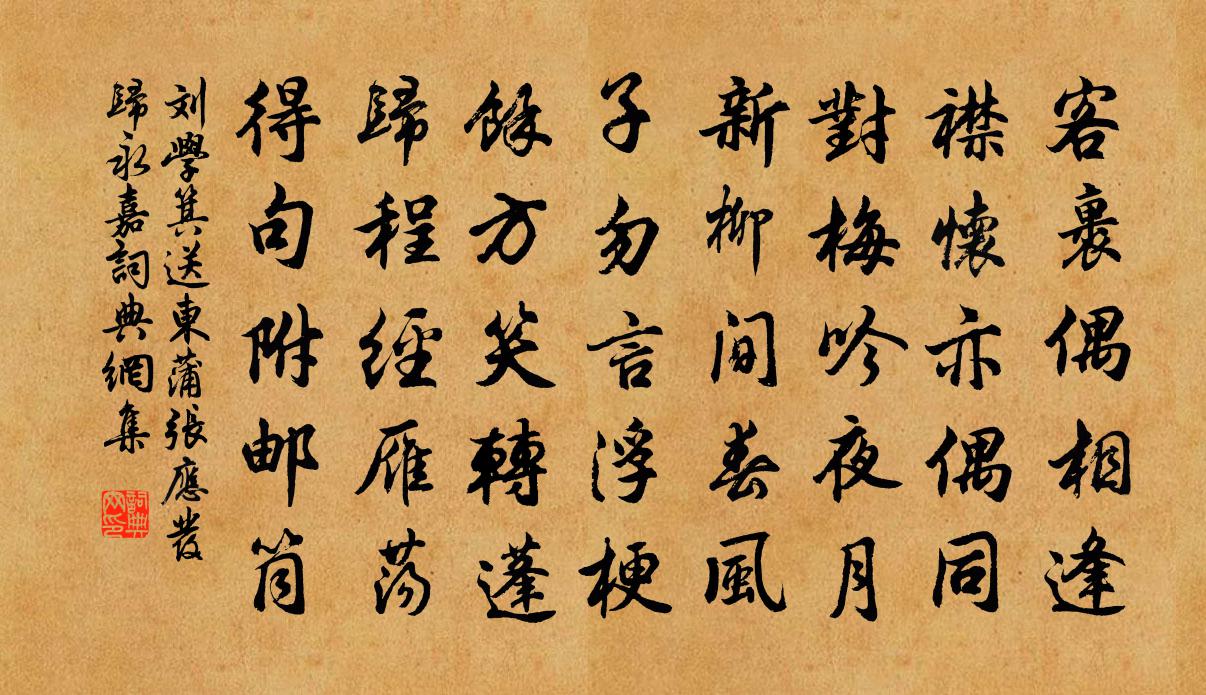 客裹偶相逢
襟懷亦偶同
對梅吟夜月
新柳間春風
子勿言浮梗
餘方笑轉蓬
歸程經雁蕩
得句附邮筒
刘學箕送東蒲張應發
歸永嘉詞典網集
詞典网印